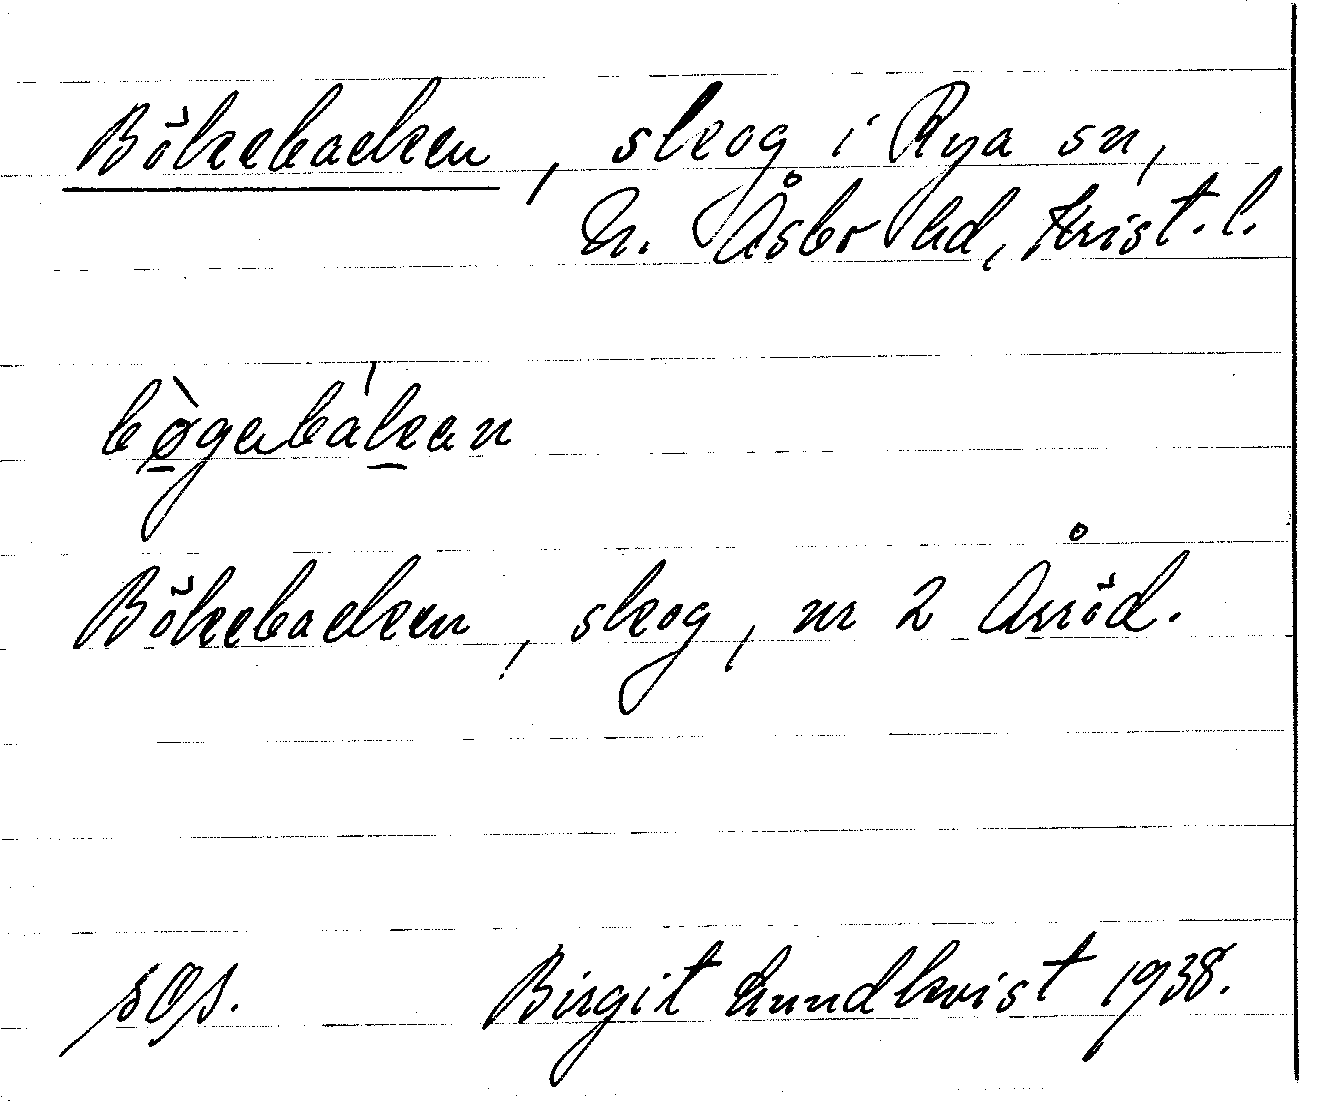 Bökebacken, skog i Rya sn,
N. Åsbo hd, Krist. l.
bø̲̀gabák̲an
Bökebacken, skog, nr 2 Årröd.
sOs. Birgit Lundkvist 1938.